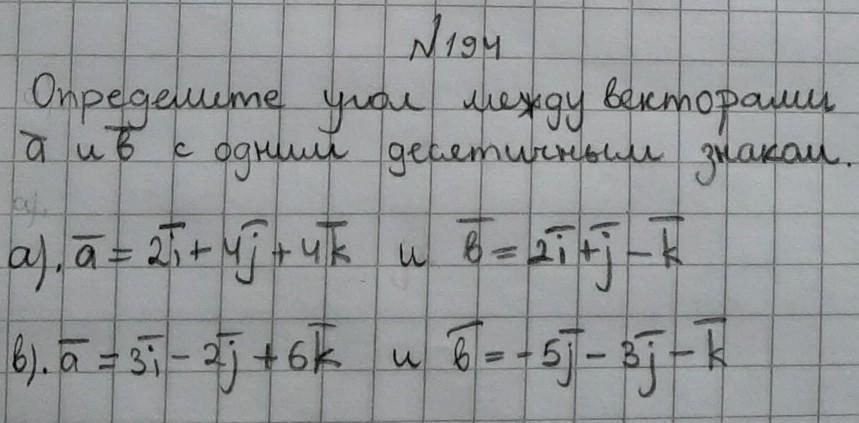 N194
Определите угол между векторами
a̅ и b̅ с одним десятичным знаком.
а). a̅ = 2i̅ + 4j̅ + 4k̅ и b̅ = 2i̅ + j̅ - k̅
в). a̅ = 3i̅ - 2j̅ + 6k̅ и b̅ = -5j̅ - 3j̅ - k̅